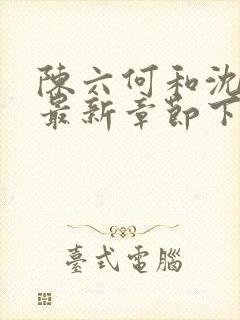 陳六何和沈
最新章節下
臺式電腦